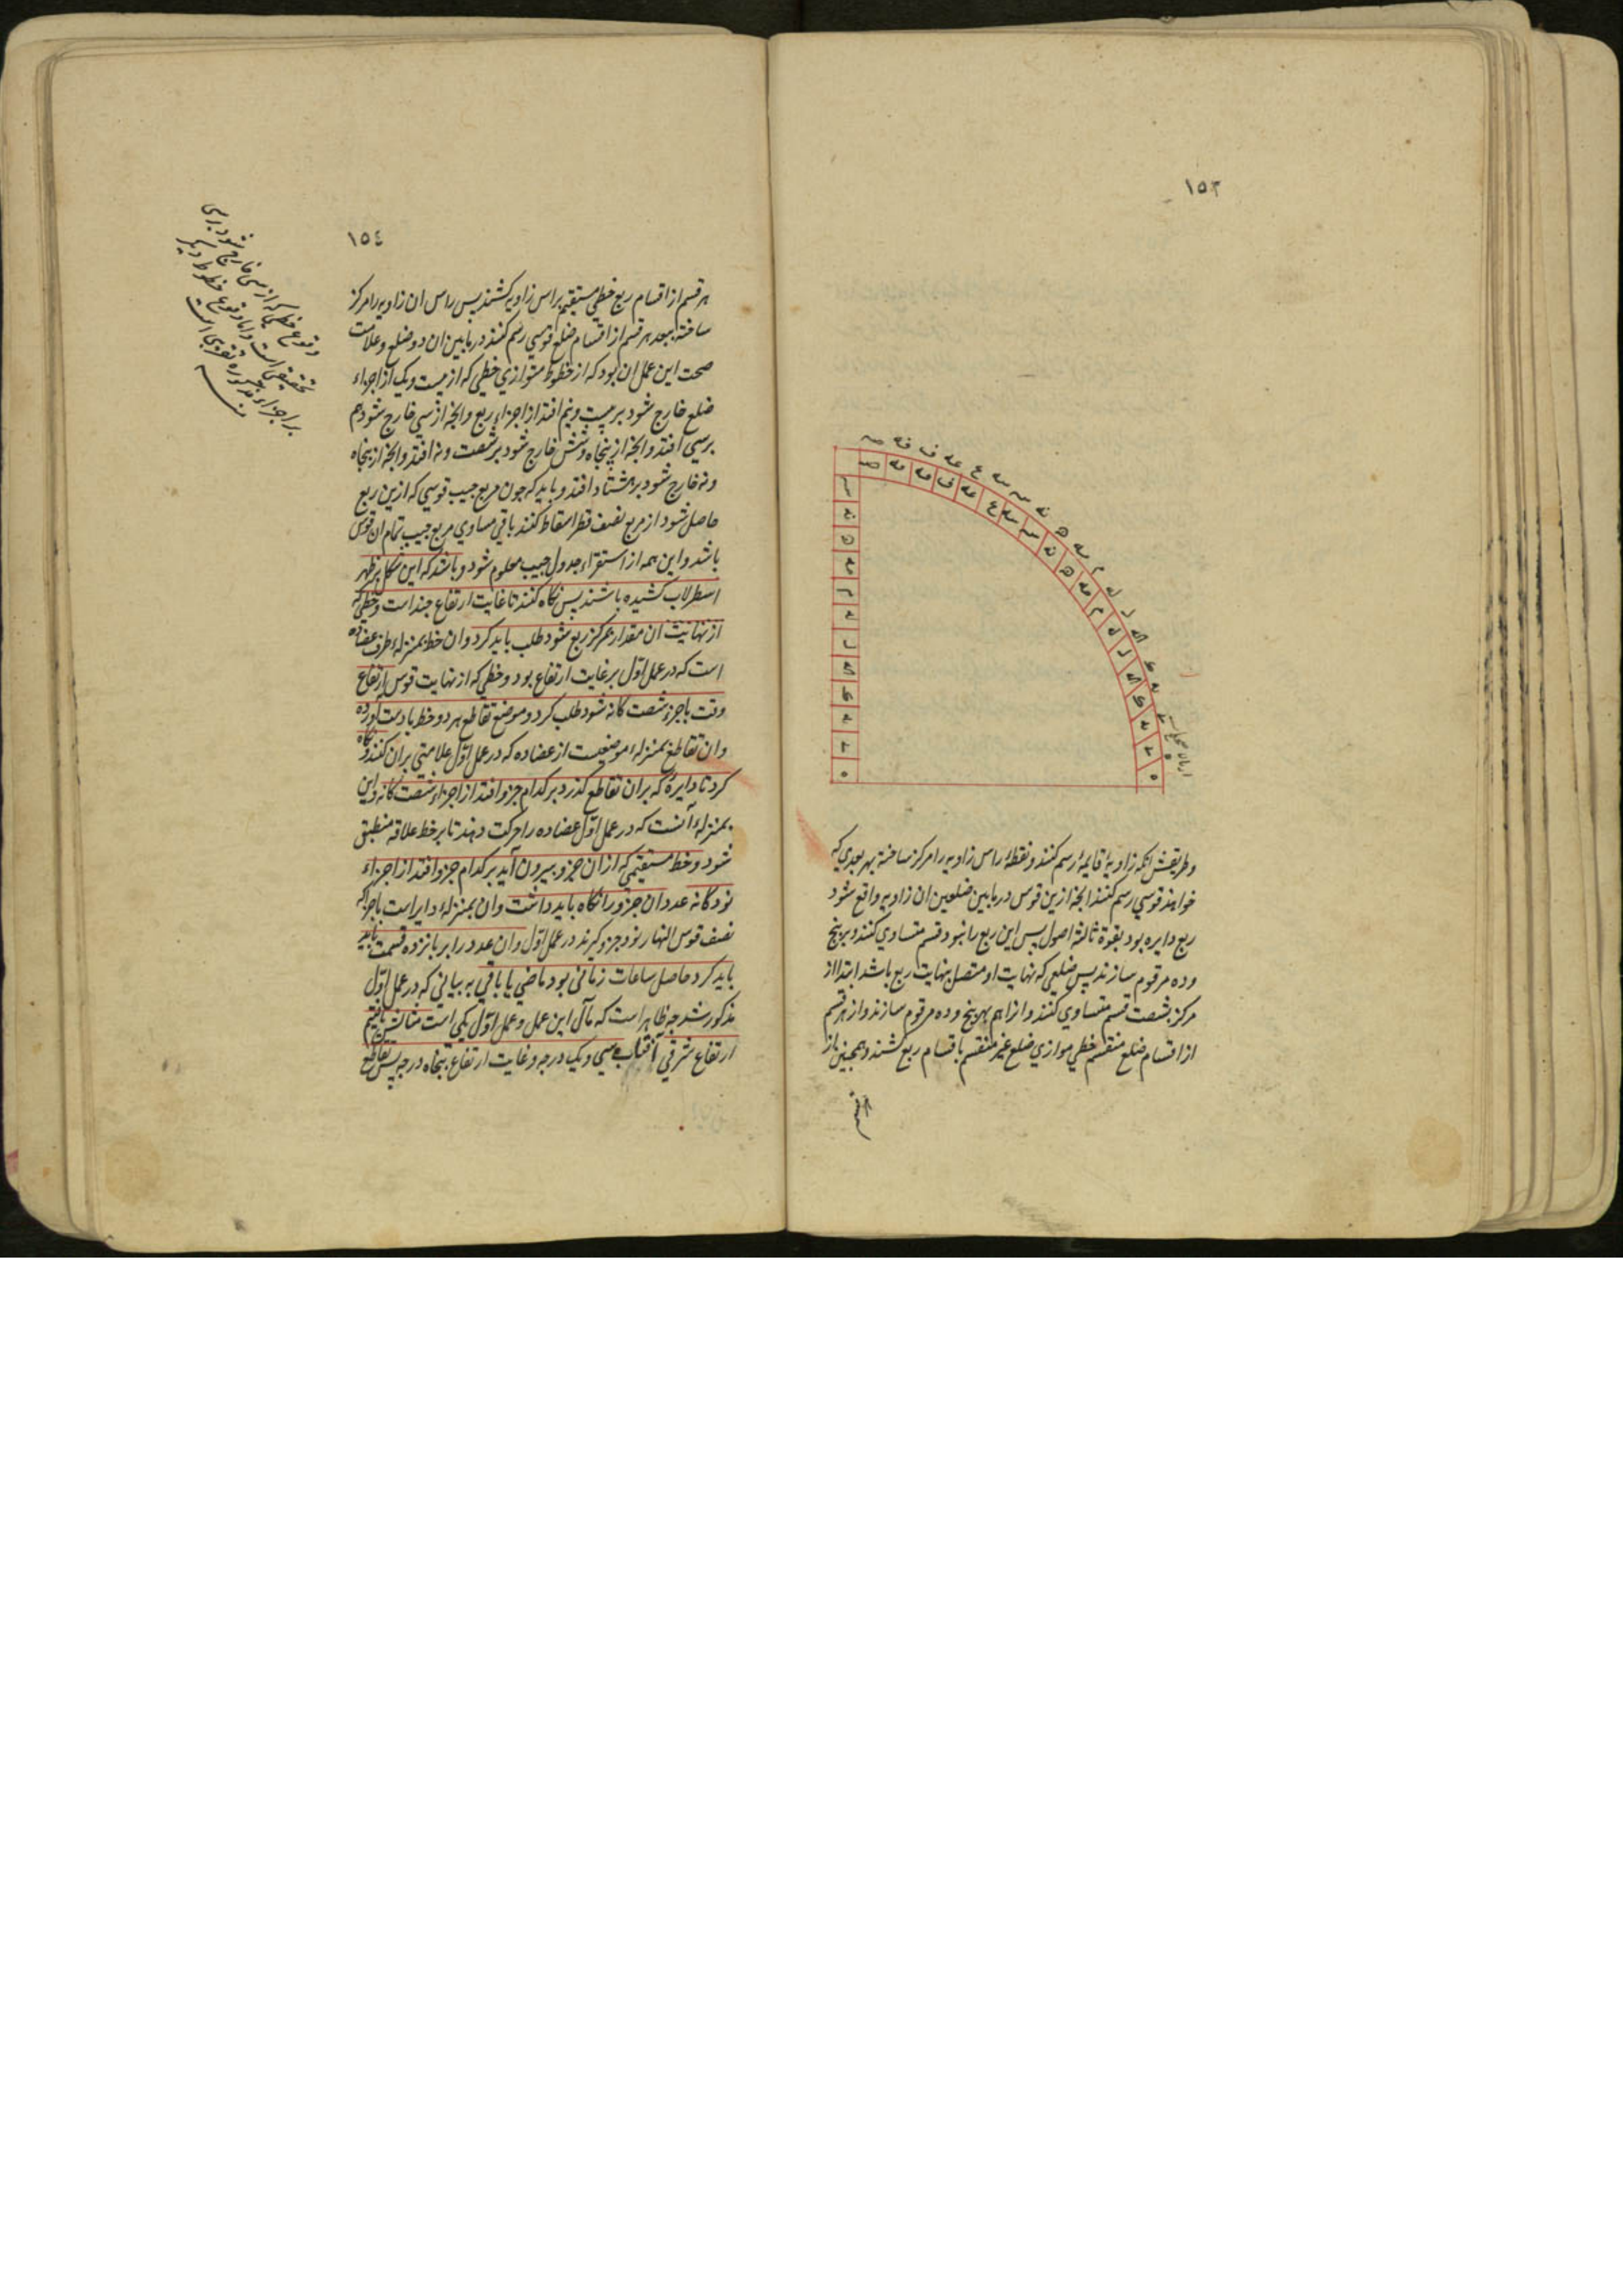 ١٥٣
وطریقش انکه زاویهٔ قایمهٔ رسم کنند ونقطهٔ راس زاویه را مرکز ساخته بهر بعدی که
خواهند قوسی رسم کنند انچه ازین قوس در مابین ضلعین ان زاویه واقع شود
ربع دایره بود بقوة ثالثهٔ اصول پس این ربع را بنود قسم متساوی کنند وبر پنج
وده مرقوم سازند پس ضلعی که نهایت او متصل بنهایت ربع باشد ابتدا از
مرکز بشصت قسم متساوی کنند وانرا هم بهر پنج وده مرقوم سازند واز هر قسم
از اقسام ضلع منقسم خطی موازی ضلع غیر منقسم باقسام ربع کشند وهمچنین از
١٥٤
هر قسم از اقسام ربع خطی مستقیم براس زاویه کشند پس راس ان زاویه را مرکز
ساخته ببعد هر قسم از اقسام ضلع قوسی رسم کنند در مابین ان دو ضلع وعلامت
صحت این عمل ان بود که از خطوط متوازی خطی که از بیست ویک از اجزاء
ضلع خارج شود بر بیست ونیم افتد از اجزاء ربع وانچه از سی خارج شود هم
برسی افتد وانچه از پنجاه وشش خارج شود بر شصت ونه افتد وانچه از پنجاه
ونه خارج شود بر هشتاد افتد وباید که چون مربع جیب قوسی که ازین ربع
حاصل شود از مربع نصف قطر اسقاط کنند باقی مساوی مربع جیب تمام ان قوس
باشد واین همه از استقراء جدول جیب معلوم شود وباشد که این شکل بر ظهر
اسطرلاب کشیده باشند پس نگاه کنند تا غایت ارتفاع چند است وخطی که
از نهایت ان مقدار بمرکز ربع شود طلب باید کرد وان خط بمنزلهٔ طرف عضاده
است که در عمل اول بر غایت ارتفاع بود وخطی که از نهایت قوس ارتفاع
وقت باجزء شصت کانه شود طلب کرد وموضع تقاطع هر دو خط بادست آورده
وان تقاطع بمنزلهٔ موضعیست از عضاده که در عمل اول علامتی بران کنند ونگاه
کرد تا دایرهٔ که بران تقاطع کذرد بر کدام جزو افتد از اجزاء شصت کانه واین
بمنزلهٔ آنست که در عمل اول عضاده را حرکت دهند تا بر خط علاقه منطبق
شود وخط مستقیمی که ازان جزو بیرون آید بر کدام جزو افتد از اجزاء
نود کانه عدد ان جزو را نگاه باید داشت وان بمنزلهٔ دایر است باجزائی که
نصف قوس النهار نود جزو گیرند در عمل اول وان عدد را بر پانزده قسمت
باید کرد حاصل ساعات زمانی بود ماضی یا باقی به بیانی که در عمل اول
مذکور شد چه ظاهر است که مآل این عمل وعمل اول یکی است مثالش یافتیم
ارتفاع شرقی آفتاب سی ویک درجه وغایت ارتفاع پنجاه درجه پس تقاطع
وقوع خطی که از سی خارج شود بر سی
تحقیقی است واما وقوع خطوط دیگر
بر اجزاء مذکوره تقریبی است
منه